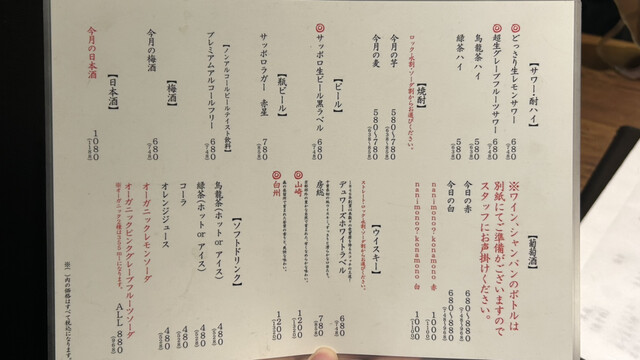 【サワー・酎ハイ】
どっさり生レモンサワー 680
超生グレープフルーツサワー 680
烏龍茶ハイ 580
緑茶ハイ 580
【焼酎】
ロック・水割・ソーダ割からお選びください。
今月の芋 580～780
今月の麦 580～780
【ビール】
サッポロ生ビール黒ラベル 680
【瓶ビール】
サッポロラガー 赤星 780
【ノンアルコールビールテイスト飲料】
プレミアムアルコールフリー 680
【梅酒】
今月の梅酒 680
【日本酒】
今月の日本酒 1080
【葡萄酒】
※ワイン、シャンパンのボトルは
別紙にてご準備がございますので
スタッフにお声掛けください。
今日の赤 680～880
今日の白 680～880
nanimono?konamono 赤 1080
nanimono?konamono 白 1080
【ウイスキー】
ストレート・ロック・水割・ソーダ割からお選びください。
デュワーズホワイトラベル 680
房総 780
山崎 1200
白州 1200
【ソフトドリンク】
烏龍茶(ホット or アイス) 480
緑茶(ホット or アイス) 480
コーラ 480
オレンジジュース 480
オーガニックレモンソーダ
オーガニックピンクグレープフルーツソーダ
ALL 880
※( )内の価格はすべて税込になります。